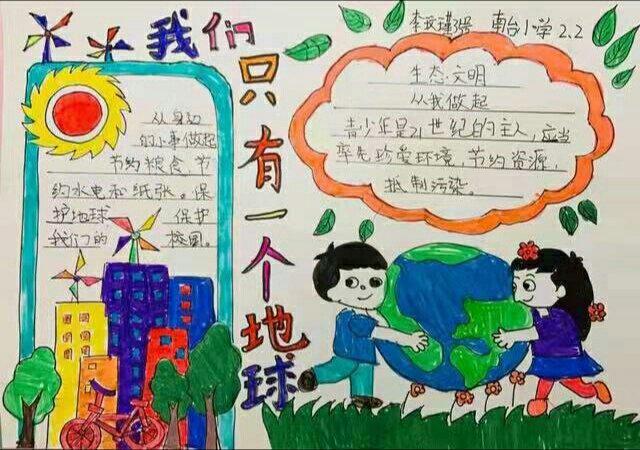 我们
只有一个地球
南台小学2.2
从身边
的小事做起
节约粮食,节
约水电和纸张。保
护地球 保护
我们的 校园。
生态文明
从我做起
青少年是21世纪的主人,应当
率先珍爱环境,节约资源,
抵制污染。